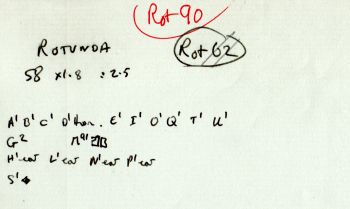 Rot 90
ROTUNDA Rot 62
58 x 1.8 : 2.5
A' B' C' D' hor. E' I' O' Q' T' U'
G²
H'ear L'ear N'ear P'ear
S'